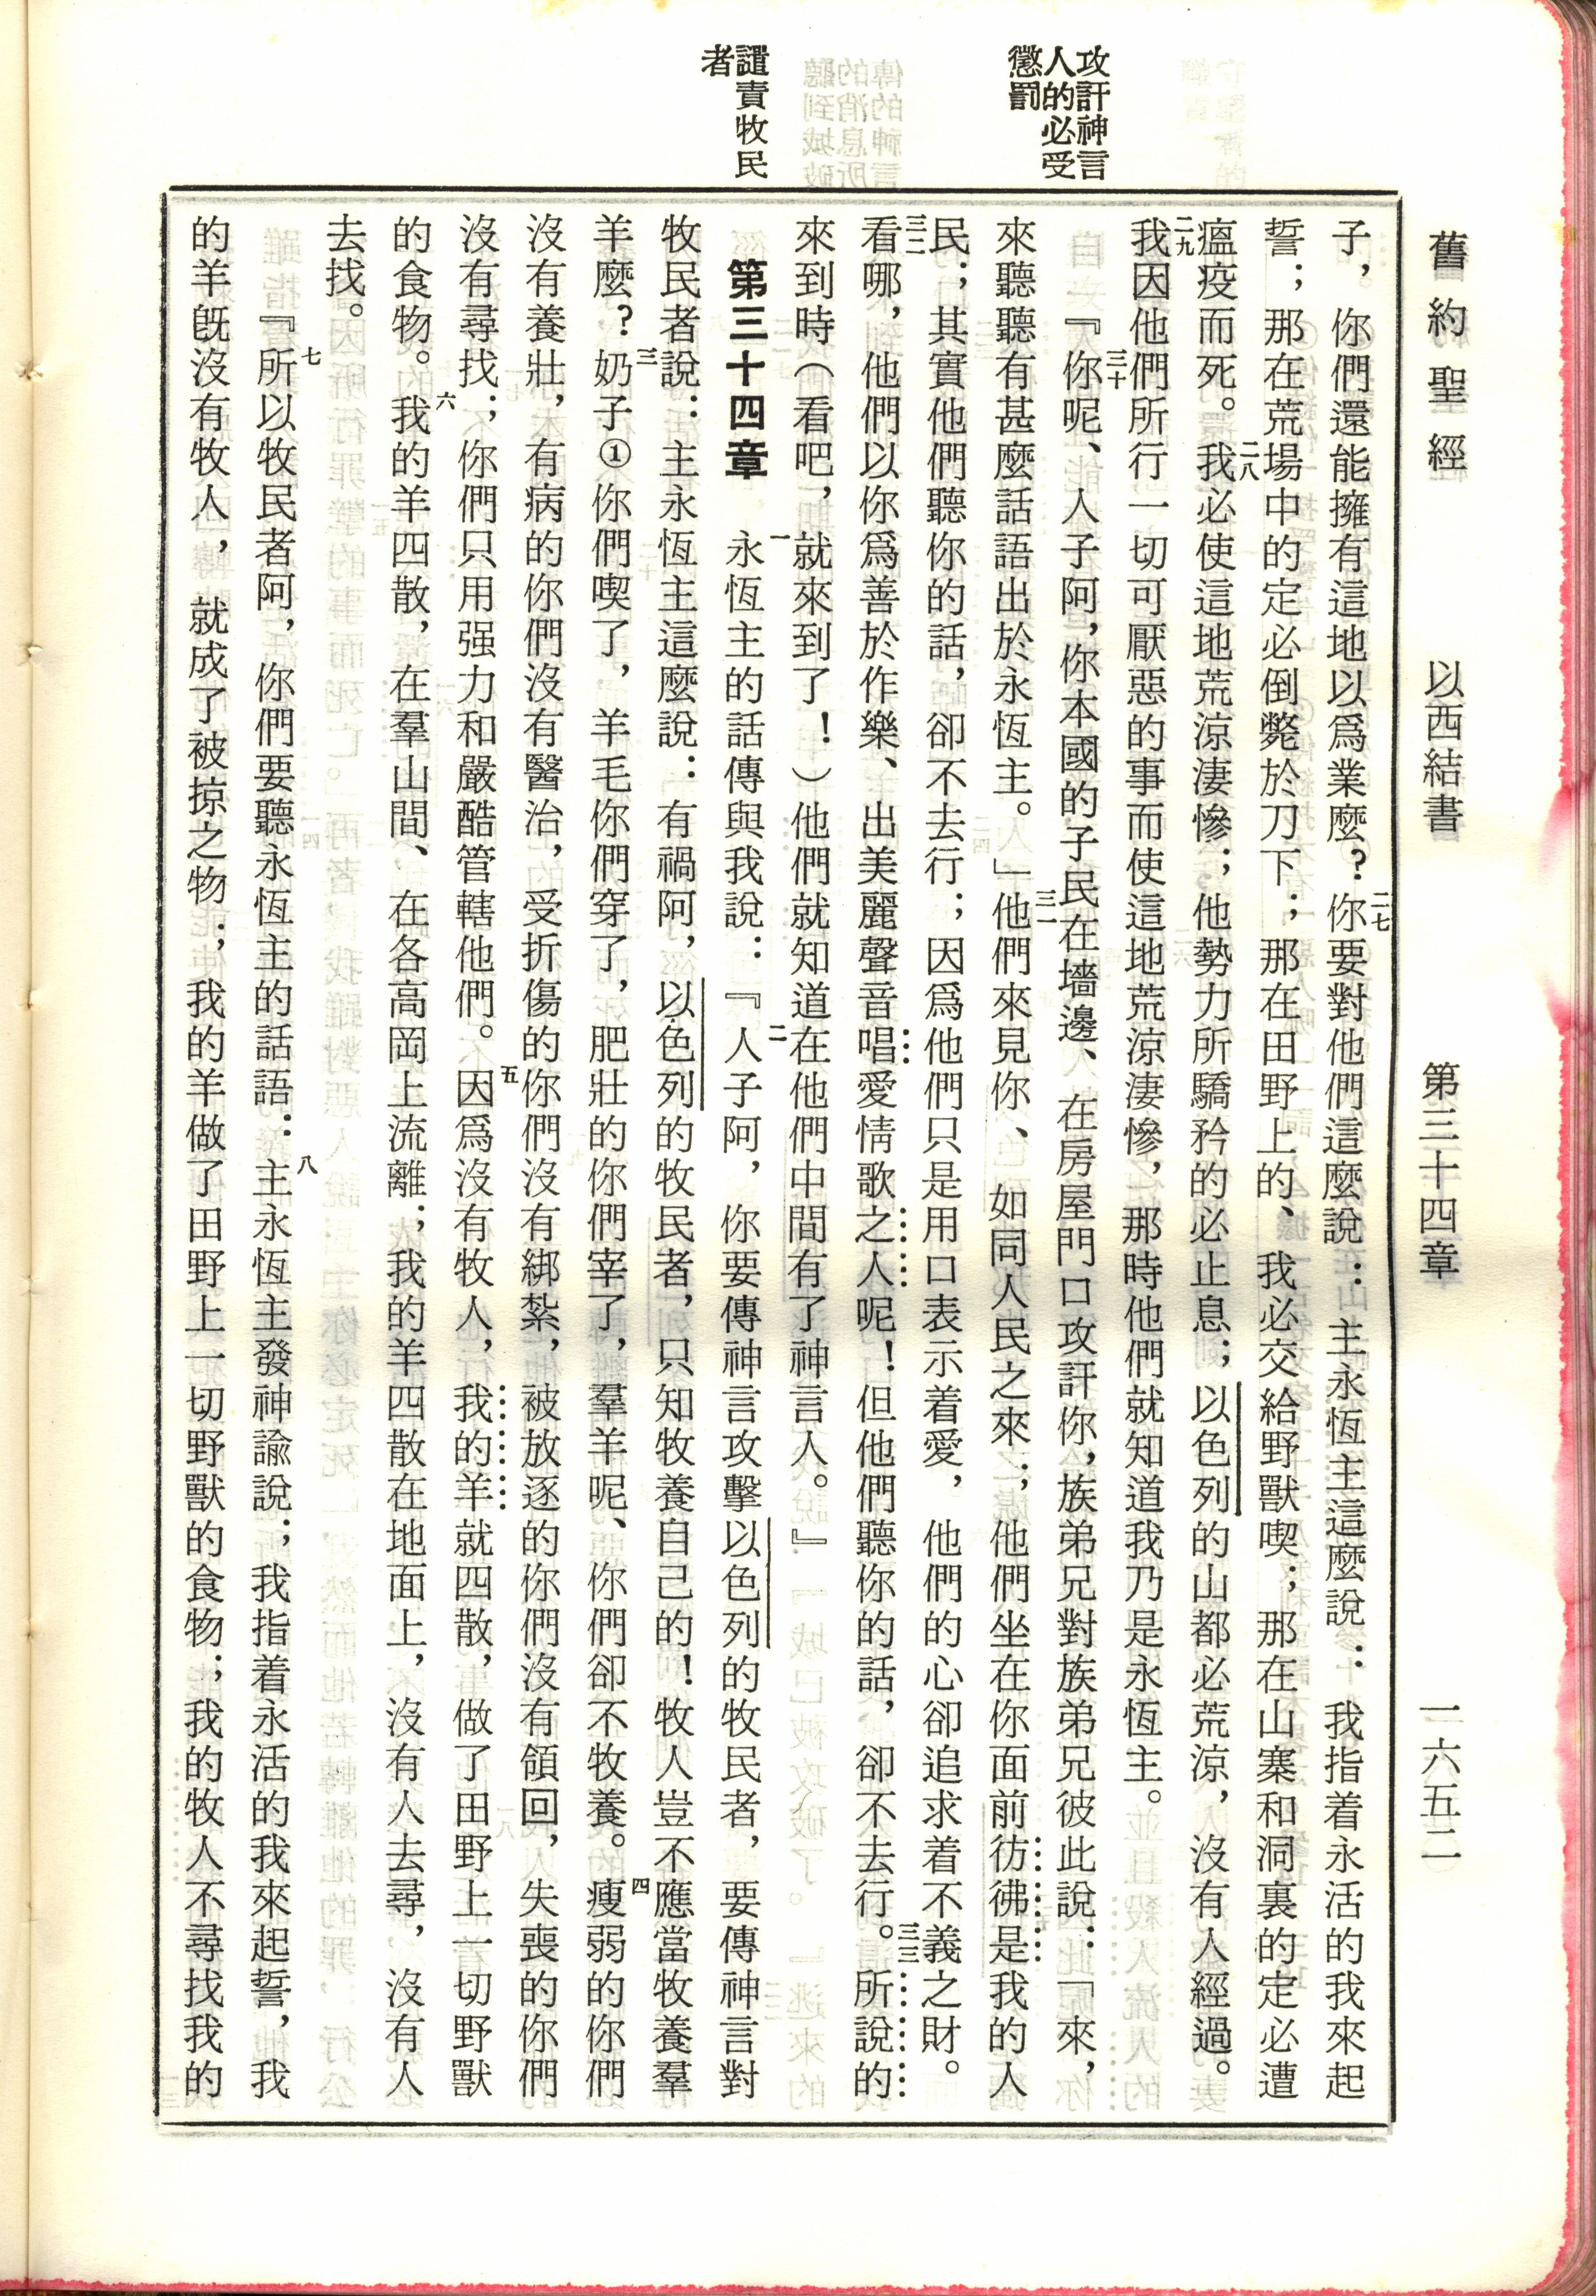 舊約聖經 以西結書 第三十四章 一六五二
攻訐神言
人的必受
懲罰
譴責牧民
者
子，你們還能擁有這地以爲業麼？二七你要對他們這麼說：主永恆主這麼說：我指着永活的我來起
誓；那在荒場中的定必倒斃於刀下；那在田野上的、我必交給野獸喫；那在山寨和洞裏的定必遭
瘟疫而死。二八我必使這地荒涼淒慘；他勢力所驕矜的必止息；以色列的山都必荒涼，沒有人經過。
二九我因他們所行一切可厭惡的事而使這地荒涼淒慘，那時他們就知道我乃是永恆主。
三十『你呢、人子阿，你本國的子民在墻邊、在房屋門口攻訐你，族弟兄對族弟兄彼此說：「來，
來聽聽有甚麼話語出於永恆主。」三一他們來見你、如同人民之來；他們坐在你面前彷彿是我的人
民；其實他們聽你的話，卻不去行；因爲他們只是用口表示着愛，他們的心卻追求着不義之財。
三二看哪，他們以你爲善於作樂、出美麗聲音唱愛情歌之人呢！但他們聽你的話，卻不去行。三三所說的
來到時（看吧，就來到了！）他們就知道在他們中間有了神言人。』
第三十四章 一永恆主的話傳與我說：二『人子阿，你要傳神言攻擊以色列的牧民者，要傳神言對
牧民者說：主永恆主這麼說：有禍阿，以色列的牧民者，只知牧養自己的！牧人豈不應當牧養羣
羊麼？三奶子①你們喫了，羊毛你們穿了，肥壯的你們宰了，羣羊呢、你們卻不牧養。四瘦弱的你們
沒有養壯，有病的你們沒有醫治，受折傷的你們沒有綁紮，被放逐的你們沒有領回，失喪的你們
沒有尋找；你們只用强力和嚴酷管轄他們。五因爲沒有牧人，我的羊就四散，做了田野上一切野獸
的食物。六我的羊四散，在羣山間、在各高岡上流離；我的羊四散在地面上，沒有人去尋，沒有人
去找。
七『所以牧民者阿，你們要聽永恆主的話語：八主永恆主發神諭說；我指着永活的我來起誓，我
的羊既沒有牧人，就成了被掠之物；我的羊做了田野上一切野獸的食物；我的牧人不尋找我的